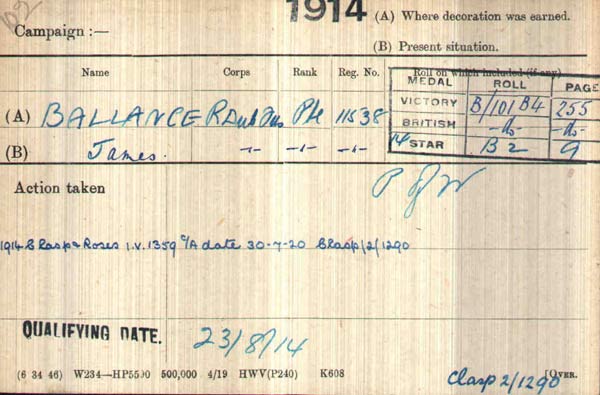 1914
Campaign :—
(A) Where decoration was earned.
(B) Present situation.
Name Corps Rank Reg. No. Roll on which included (if any)
MEDAL ROLL PAGE
(A) BALLANCE R Dub Fus Pte 11538
VICTORY B/101 B4 255
BRITISH -do- -do-
(B) James. -"- -"- -"-
14 STAR B 2 9
Action taken
P of W
1914 Clasp & Roses I.V. 1359 c/A date 30-7-20 Clasp/2/1290
QUALIFYING DATE. 23/8/14
(6 34 46) W234—HP5590 500,000 4/19 HWV(P240) K608
Clasp 2/1290
[OVER.